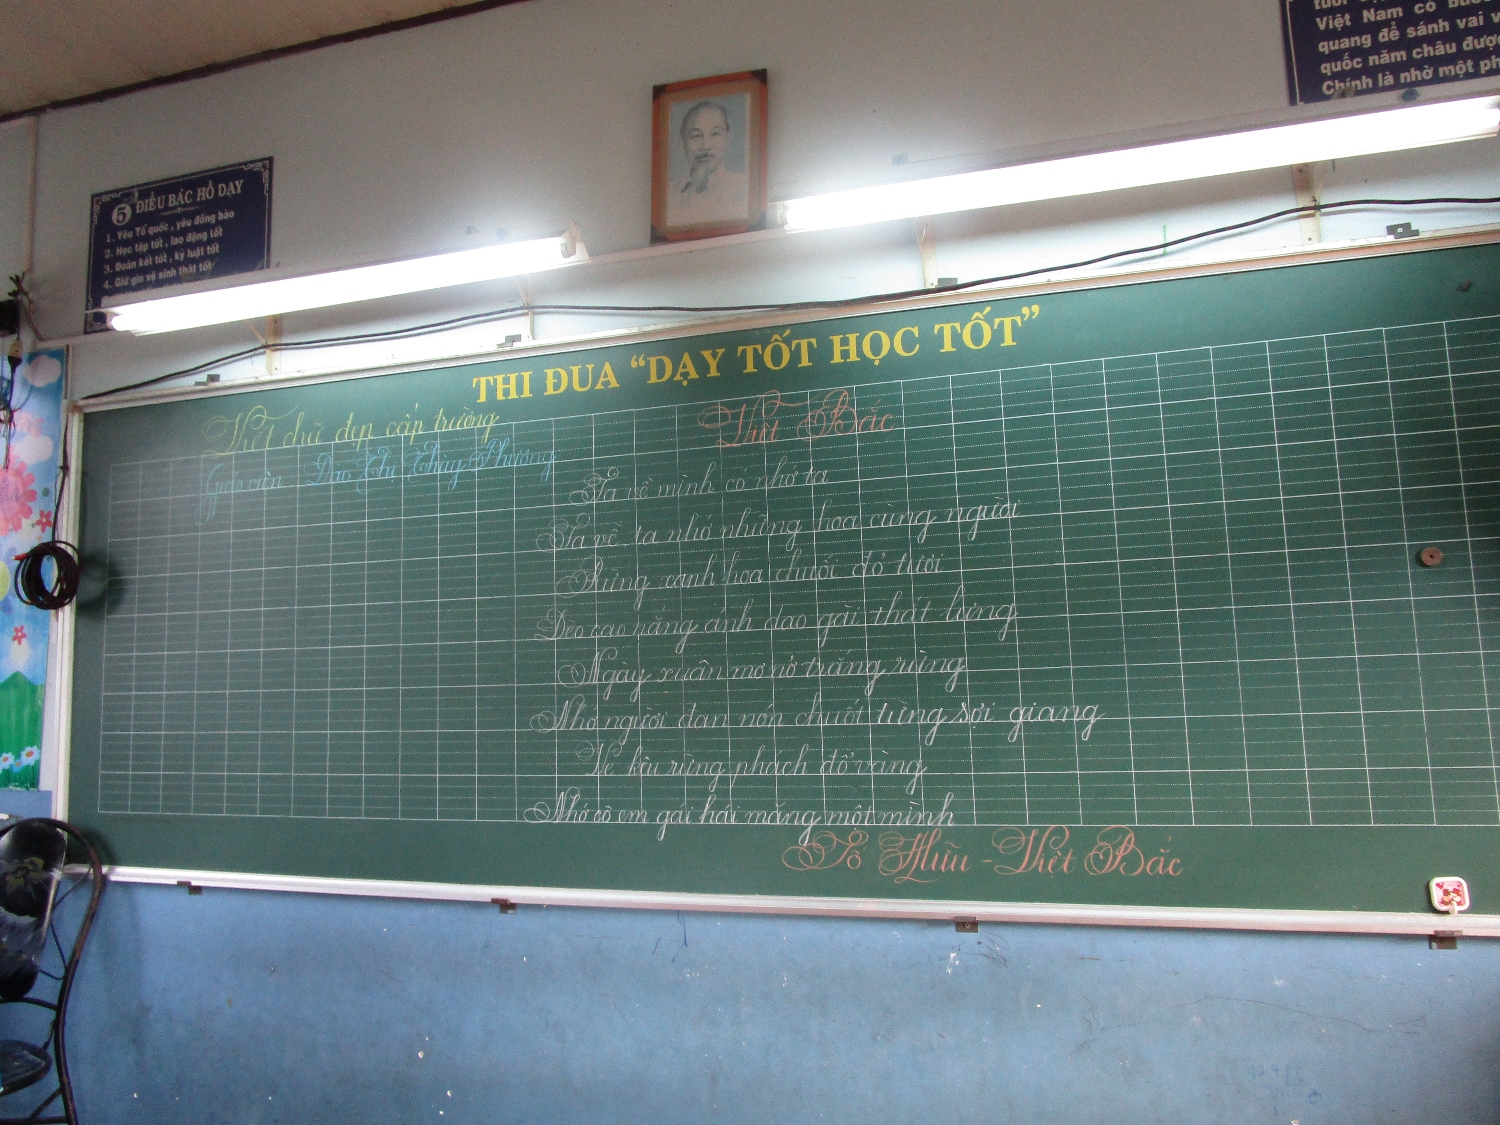 tuổi
Việt Nam có
quang để sánh vai
quốc năm châu được
Chính là nhờ một
5 ĐIỀU BÁC HỒ DẠY
1. Yêu Tổ quốc , yêu đồng bào
2. Học tập tốt , lao động tốt
3. Đoàn kết tốt , kỷ luật tốt
4. Giữ gìn vệ sinh thật tốt
THI ĐUA “DẠY TỐT HỌC TỐT”
Viết chữ đẹp cấp trường
Giáo viên Đào Thị Phương
Việt Bắc
Ta về mình có nhớ ta
Ta về ta nhớ những hoa cùng người
Rừng xanh hoa chuối đỏ tươi
Đèo cao nắng ánh dao gài thắt lưng
Ngày xuân mơ nở trắng rừng
Nhớ người đan nón chuốt từng sợi giang
Ve kêu rừng phách đổ vàng
Nhớ cô em gái hái măng một mình
Tố Hữu - Việt Bắc